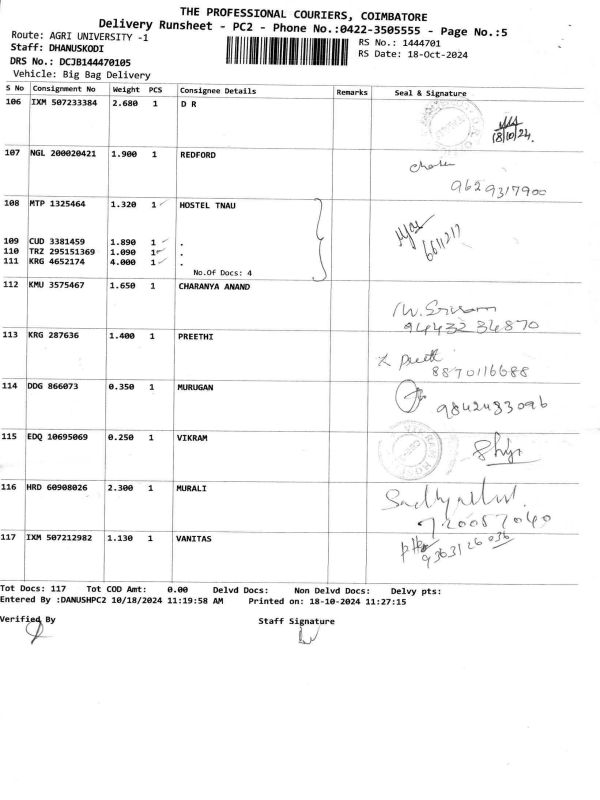 THE PROFESSIONAL COURIERS, COIMBATORE
Delivery Runsheet - PC2 - Phone No.:0422-3505555 - Page No.:5
Route: AGRI UNIVERSITY -1
RS No.: 1444701
Staff: DHANUSKODI
RS Date: 18-Oct-2024
DRS No.: DCJB144470105
Vehicle: Big Bag Delivery
S No Consignment No Weight PCS Consignee Details Remarks Seal & Signature
106 IXM 507233384 2.680 1 D R
18/10/24.
107 NGL 200020421 1.900 1 REDFORD
9629317900
108 MTP 1325464 1.320 1 HOSTEL TNAU
109 CUD 3381459 1.890 1 .
110 TRZ 295151369 1.090 1 .
111 KRG 4652174 4.000 1 .
No.Of Docs: 4
6611217
112 KMU 3575467 1.650 1 CHARANYA ANAND
94432 34870
113 KRG 287636 1.400 1 PREETHI
8870116688
114 DDG 866073 0.350 1 MURUGAN
9842483096
115 EDQ 10695069 0.250 1 VIKRAM
116 HRD 60908026 2.300 1 MURALI
720057040
117 IXM 507212982 1.130 1 VANITAS
9363126036
Tot Docs: 117 Tot COD Amt: 0.00 Delvd Docs: Non Delvd Docs: Delvy pts:
Entered By :DANUSHPC2 10/18/2024 11:19:58 AM Printed on: 18-10-2024 11:27:15
Verified By Staff Signature